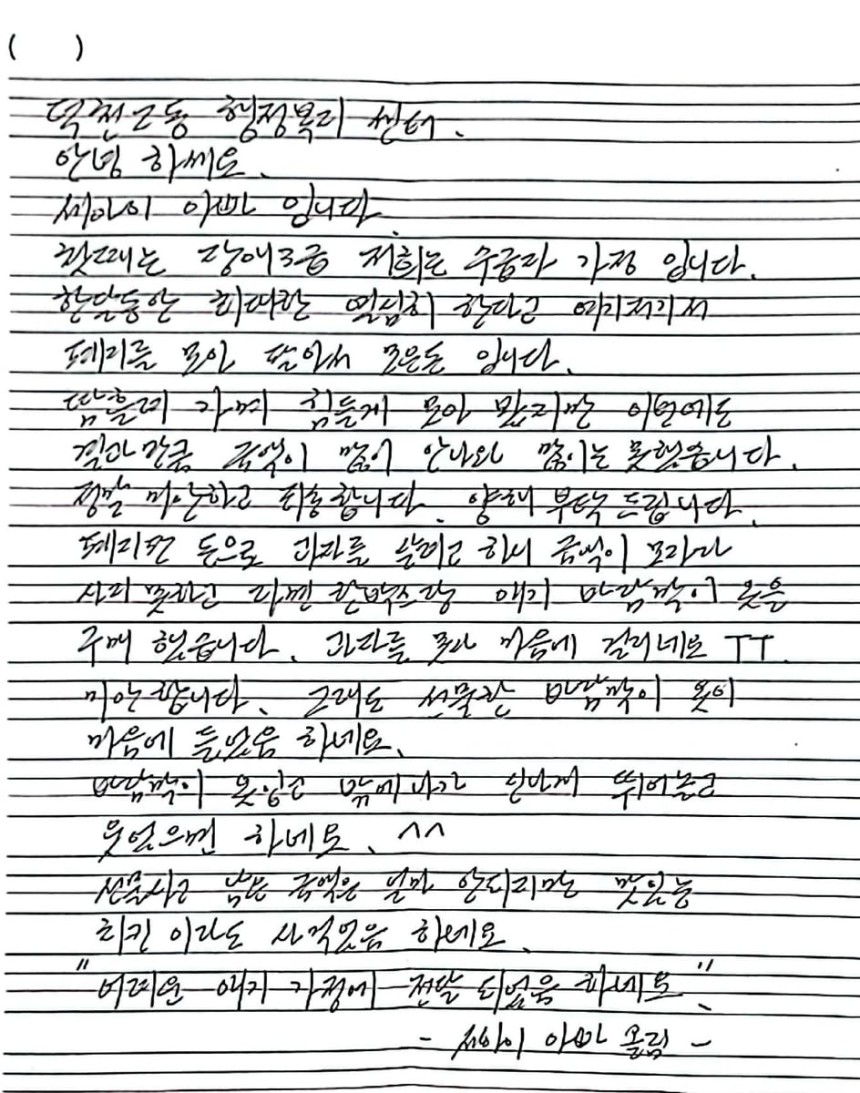 ( )
덕천2동 행정복지 센터.
안녕 하쎄요.
세아이 아빠 입니다.
첫째는 장애3급 저희는 수급자 가정 입니다.
한달동안 최대한 열심히 한다고 여기저기서
페지를 모아 팔아서 모은돈 입니다.
땀흘려 가며 힘들게 모아 봤지만 이번에도
결과만큼 금액이 많이 안나와 많이는 못했습니다.
정말 미안하고 죄송합니다. 양해 부탁 드립니다.
페지면 돈으로 과자를 살려고 하니 금액이 모자라
사지 못하고 바람막이 옷을
구매 했습니다. 과자를 못사 마음에 걸리네요 ㅜㅜ.
미안합니다. 그래도 선물한 바람막이 옷이
마음에 들었음 하네요.
바람막이 옷입고 밖에나가 신나게 뛰어놀고
웃었으면 하네요. ^^
선물사고 남은 금액은 얼마 안되지만 맛있는
치킨 이라도 사먹었음 하네요.
"어려운 애기 가정에 전달 되었음 하네요."
- 세아이 아빠 올림 -